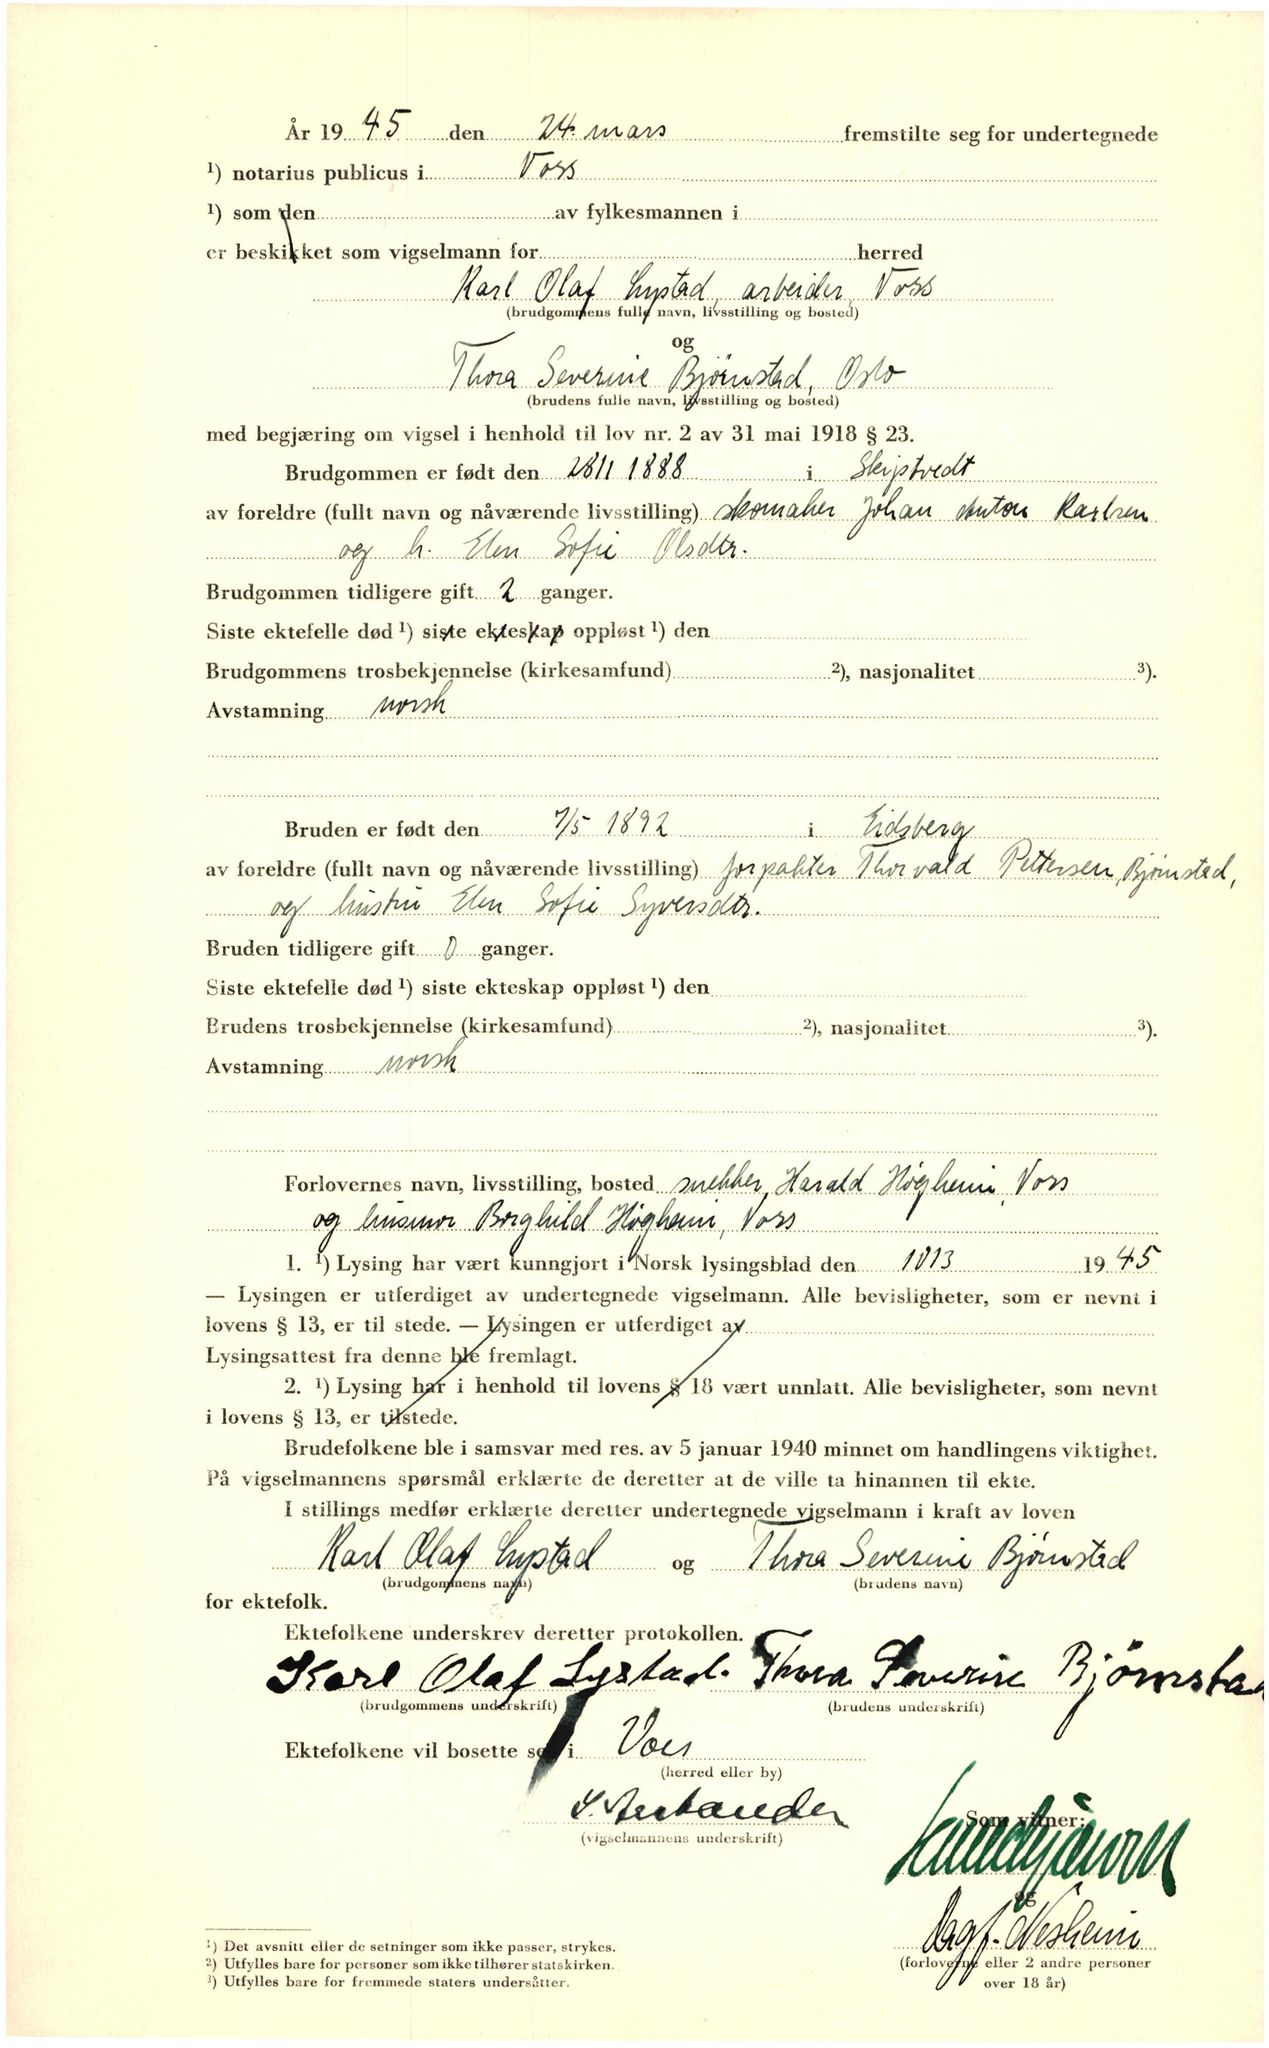 År 19 45 den 24. mars fremstilte seg for undertegnede
1) notarius publicus i Voss
1) som den av fylkesmannen i
er beskikket som vigselmann for herred
Karl Olaf Lystad, arbeider, Voss
(brudgommens fulle navn, livsstilling og bosted)
og
Thora Severine Bjørnstad, Oslo
(brudens fulle navn, livsstilling og bosted)
med begjæring om vigsel i henhold til lov nr. 2 av 31 mai 1918 § 23.
Brudgommen er født den 28/1 1888 i Skiptvedt
av foreldre (fullt navn og nåværende livsstilling) skomaker Johan Anton Karlsen
og h. Elen Sofie Olsdtr.
Brudgommen tidligere gift 2 ganger.
Siste ektefelle død 1) siste ekteskap oppløst 1) den
Brudgommens trosbekjennelse (kirkesamfund) 2), nasjonalitet 3).
Avstamning norsk
Bruden er født den 7/5 1892 i Eidsberg
av foreldre (fullt navn og nåværende livsstilling) forpakter Thorvald Pettersen Bjørnstad,
og hustru Elen Sofie Syversdtr.
Bruden tidligere gift 0 ganger.
Siste ektefelle død 1) siste ekteskap oppløst 1) den
Brudens trosbekjennelse (kirkesamfund) 2), nasjonalitet 3).
Avstamning norsk
Forlovernes navn, livsstilling, bosted snekker Harald Høgheim, Voss
og husmor Borghild Høgheim, Voss
1. 1) Lysing har vært kunngjort i Norsk lysingsblad den 10/3 19 45
— Lysingen er utferdiget av undertegnede vigselmann. Alle bevisligheter, som er nevnt i
lovens § 13, er til stede. — Lysingen er utferdiget av
Lysingsattest fra denne ble fremlagt.
2. 1) Lysing har i henhold til lovens § 18 vært unnlatt. Alle bevisligheter, som nevnt
i lovens § 13, er tilstede.
Brudefolkene ble i samsvar med res. av 5 januar 1940 minnet om handlingens viktighet.
På vigselmannens spørsmål erklærte de deretter at de ville ta hinannen til ekte.
I stillings medfør erklærte deretter undertegnede vigselmann i kraft av loven
Karl Olaf Lystad og Thora Severine Bjørnstad
(brudgommens navn) (brudens navn)
for ektefolk.
Ektefolkene underskrev deretter protokollen.
Karl Olaf Lystad. Thora Severine Bjørnstad
(brudgommens underskrift) (brudens underskrift)
Ektefolkene vil bosette seg i Voss
(herred eller by)
(vigselmannens underskrift)
Som vitner:
og
Dagf. Nesheim
(forloverne eller 2 andre personer
over 18 år)
1) Det avsnitt eller de setninger som ikke passer, strykes.
2) Utfylles bare for personer som ikke tilhører statskirken.
3) Utfylles bare for fremmede staters undersåtter.